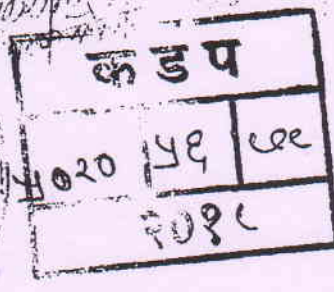 क ड प
५०२० ५६
२०१८